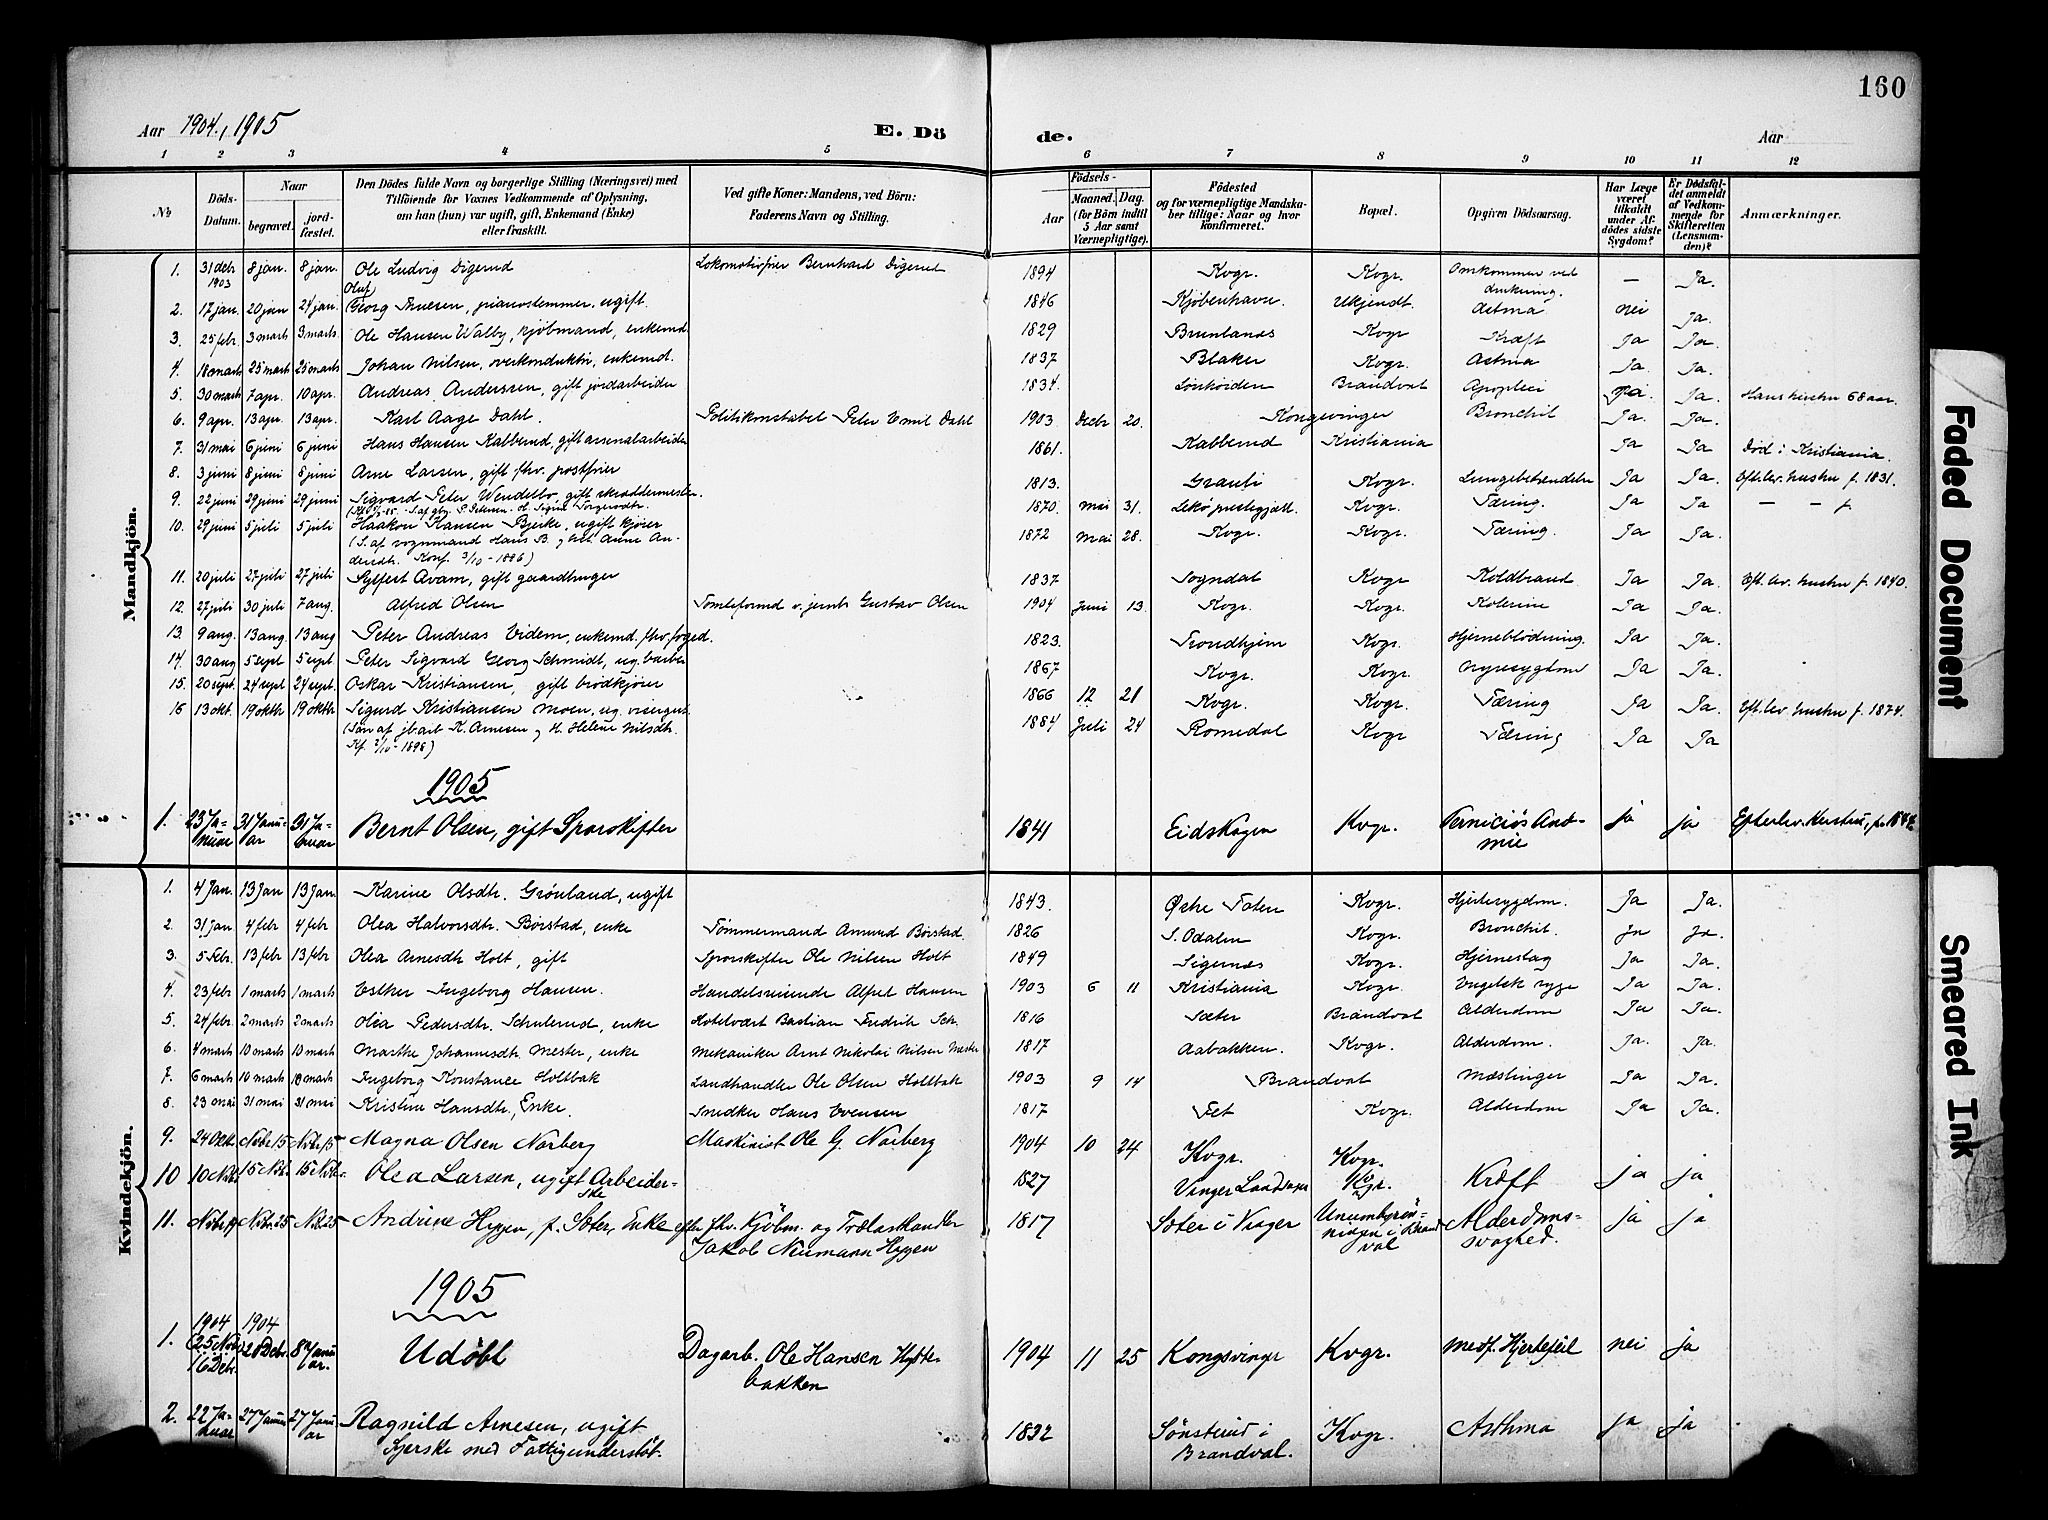 160
Aar 1904, 1905
E. Dö
de.
Aar
1 2 3 4 5 6 7 8 9 10 11 12
№
Döds-Datum.
Naar
begravet.
jord-fæstet.
Den Dödes fulde Navn og borgerlige Stilling (Næringsvei) med
Tilföiende for Voxnes Vedkommende af Oplysning,
om han (hun) var ugift, gift, Enkemand (Enke)
eller fraskilt.
Ved gifte Koner: Mandens, ved Börn:
Faderens Navn og Stilling.
Födsels-
Aar
Maaned. Dag.
(for Börn indtil
5 Aar samt
Værnepligtige).
Födested
og for værnepligtige Mandska-
ber tillige: Naar og hvor
konfirmeret.
Bopæl.
Opgiven Dödsaarsag.
Har Læge
været
tilkaldt
under Af-
dödes sidste
Sygdom?
Er Dödsfal-
det anmeldt
af Vedkom-
mende for
Skifteretten
(Lensman-
den)?
Anmærkninger.
Mandkjön.
1. 31 decbr 1903 8 jan. 8 jan. Ole Ludvig Digerud Lokomotivfører Bernhard Digerud 1894 Kvgr. Kvgr. Omkommen ved drukning. — Ja.
2. 17 jan. 20 jan 24 jan. Georg Oluf Thuesen, pianostemmer, ugift. 1846 Kjøbenhavn. Ukjendt. Astma nei Ja.
3. 25 febr. 3 marts 3 marts. Ole Hansen Walby, kjøbmand, enkemd. 1829 Brunlanes Kvgr Kræft Ja Ja.
4. 18 marts 25 marts 25 marts Johan Nilsen, overkonduktør, enkemd. 1837 Blaker Kvgr. Astma Ja. Ja.
5. 30 marts 7 apr. 10 apr. Andreas Anderssen, gift jordarbeider 1834. Brandval Apoplexi Ja. Ja. Hans hustru 68 aar.
6. 9 apr. 13 apr. 13 apr. Karl Aage Dahl. Politikonstabel Peter Emil Dahl 1903 decbr 20. Kongsvinger Bronchit Ja. Ja.
7. 31 mai 6 juni 6 juni Hans Hansen Kabberud, gift arsenalarbeider 1861. Kabberud Kristiania Ja Ja Död i Kristiania.
8. 3 juni 8 juni 8 juni Arne Larsen, gift fhv. postfører 1813. Granli Kvgr. Lungebetændelse Ja Ja. Eft.lev. hustru f. 1831.
9. 22 juni 29 juni 29 juni Sigvard Peter Wendelbo, gift skræddermester. 1870 mai 31. Lekø prestegjeld. Kvgr. Tæring. Ja Ja — — f.
10. 29 juni 5 juli 5 juli Haakon Hansen Bjerke, ugift kjører 1872 mai 28. Kvgr. Kvgr. Tæring. Ja Ja.
(S. af vognmand Hans B. og hst. Anne An-
dersdtr. Konf. 3/10 - 1886)
11. 20 juli 27 juli 27 juli Sylfest Avam, gift gaardbruger 1837 Sogndal Kvgr. Koldbrand. Ja Ja. Eft. lev. hustru f. 1840.
12. 27 juli 30 juli 7 aug. Alfred Olsen Tomteformd v. jernb. Gustav Olsen 1904 juni 13. Kvgr. Kvgr. Kolerine Ja Ja.
13. 9 aug. 13 aug. 13 aug Peter Andreas Eidem, enkemd. fhv. foged. 1823. Trondhjem Kvgr. Hjerneblödning. Ja Ja.
14. 30 aug 5 sept 5 sept. Peter Sigvard Georg Schmidt, ug. barber 1867 Kvgr. Kvgr. Nyresygdom Ja Ja.
15. 20 sept. 24 sept 24 sept. Oskar Kristiansen, gift brödkjører 1866 12 21 Kvgr. Kvgr. Tæring Ja Ja. Eft. lev. hustru f. 1874.
16 13 okt. 19 oktbr 19 oktbr Sigurd Kristiansen Moen, ug. visergut 1884 Juli 24 Romedal Kvgr Tæring Ja Ja
(Søn af jb.arb K. Arnesen og H. Helene Nilsdtr.
Kf. 2/10 - 1898)
1905
1. 23 Januar 31 Januar 31 Januar Bernt Olsen, gift Sporskifter 1841 Eidskogen Kvgr. Perniciøs Anæmie ja ja Efterlev. Hustru, f.
Kvindekjön.
1. 4 Jan. 13 Jan 13 Jan. Karine Olsdtr. Grönland, ugift 1843. Østre Toten Kvgr. Hjertesygdom. Ja Ja.
2. 31 Jan 4 febr 4 febr Olea Halvorsdtr. Börstad, enke Tömmermand Amund Börstad. 1826 S. Odalen Kvgr. Bronchit. ja Ja.
3. 5 Febr. 13 febr 13 febr Olea Arnesdtr Holt, gift Sporskifter Ole Nilsen Holt 1849 Sigernæs Kvgr. Hjerneslag Ja Ja.
4. 23 febr 1 marts 1 marts Esther Ingeborg Hansen. Handelsreisende Alfred Hansen 1903 6 11 Kristiania Kvgr. Engelsk syge Ja Ja.
5. 24 febr 2 marts 2 marts. Olea Pedersdtr. Schulerud, enke Hotelvært Bastian Fredrik Sch. 1816 Sæter Brandval Alderdom Ja Ja.
6. 4 marts 10 marts 10 marts Marthe Johannesdtr. Mester, enke Mekaniker Arnt Nikolai Nilsen Mester 1817 Aabakken. Kvgr. Alderdom. Ja. Ja.
7. 6 marts 10 marts 18 marts Ingeborg Konstance Holtbak Landhandler Ole Olsen Holtbak 1903 9 14 Brandval Mæslinger Ja Ja.
8. 23 mai 31 mai 31 mai Kristine Hansdtr., Enke. Snedker Hans Evensen 1817 Fet Kvgr. Alderdom Ja Ja.
9. 24 Okt. Nvbr. 15 Nvbr. 15 Magna Olsen Norberg Maskinist Ole G. Norberg 1904 10 24 Kvgr. Kvgr.
10 10 Nvbr. 15 Nvbr. 15 Nvbr. Olea Larsen, ugift Arbeiderske 1827 Vinger Landsogn Kvgr. Kræft ja ja
11. Nvbr. 25 Nvbr. 25 Andrine Hygen, f. Sæter, Enke efter fhv. Kjöbm. og Trælasthandler Jakob Neumann Hygen 1817 Sæter i Vinger Brandval Alderdomssvaghed. ja ja
1905
1. 1904 (25 Nvbr) 16 Debr. 1904 20 Debr. 8 Januar. Udöbt Dagarb. Ole Hansen Hyttebakken 1904 11 25 Kongsvinger Kvgr. medf. Hjertefeil nei ja
2. 22 Januar 27 Januar 27 Januar Ragnild Arnesen, ugift 1832 Sønsterud i Brandval. Kvgr. Asthma ja ja
Syerske med Fattigunderstöt.
Faded Document
Smeared Ink